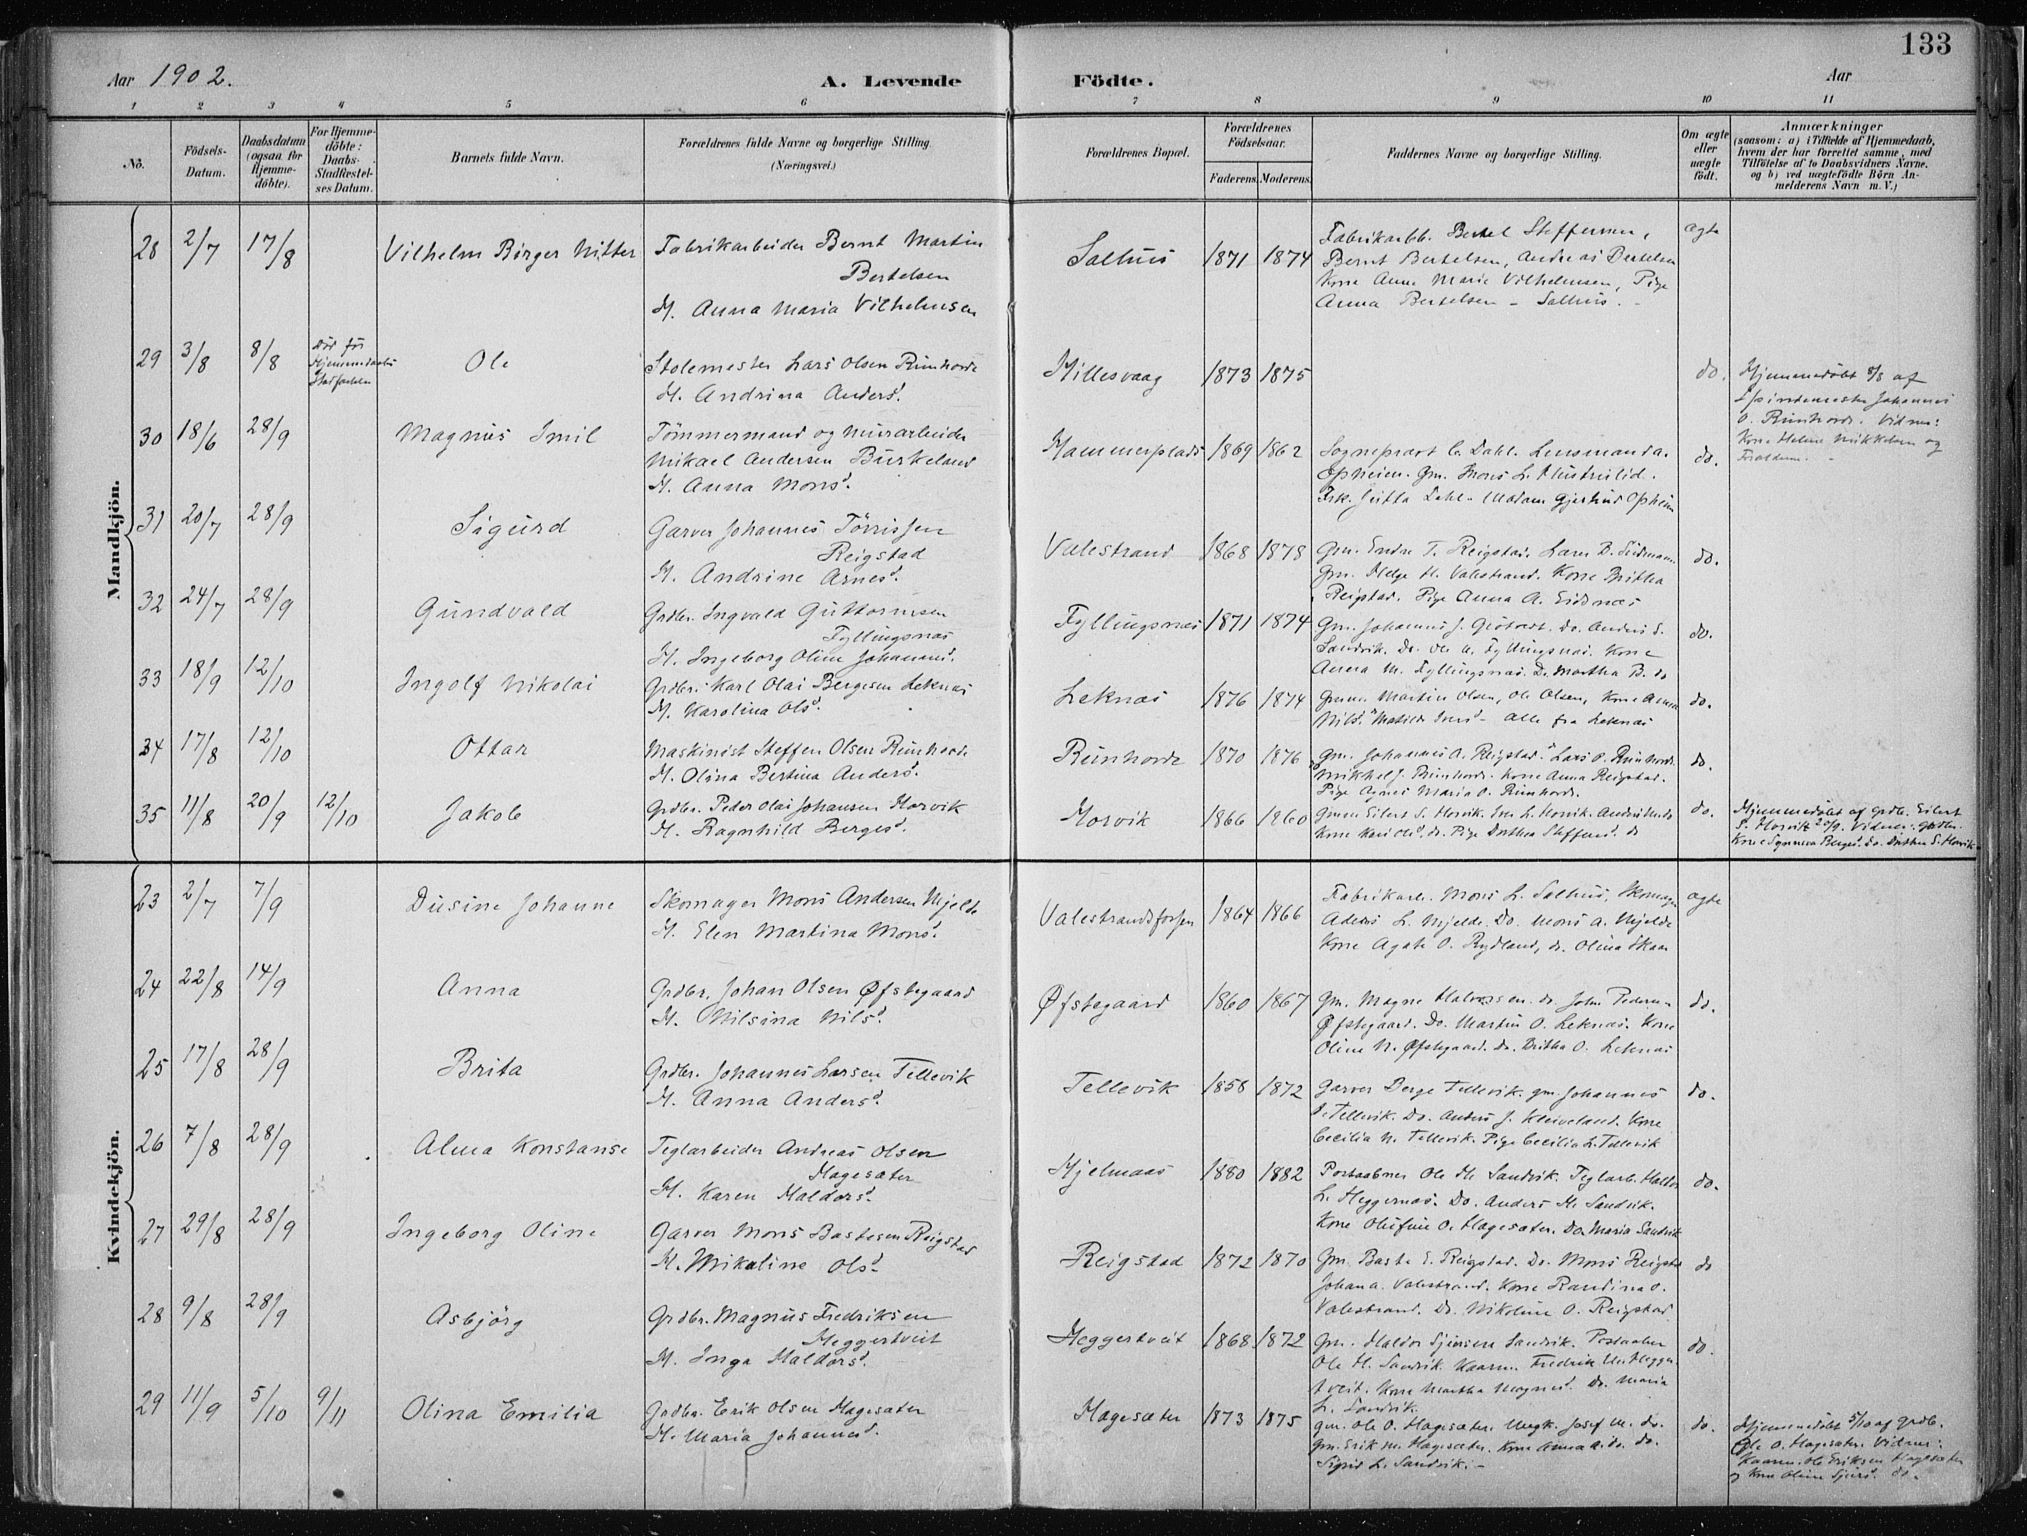 133
Aar 1902.
A. Levende Födte.
Aar
1 2 3 4 5 6 7 8 9 10 11
No.
Födsels-Datum.
Daabsdatum (ogsaa for Hjemmedöbte).
For Hjemmedöbte: Daabs-Stadfæstelses Datum.
Barnets fulde Navn.
Forældrenes fulde Navne og borgerlige Stilling (Næringsvei.)
Forældrenes Bopæl.
Forældrenes Födselsaar.
Faderens. Moderens.
Faddernes Navne og borgerlige Stilling.
Om ægte eller uægte födt.
Anmærkninger
(saasom: a) i Tilfælde af Hjemmedaab,
hvem der har forrettet samme, med
Tilföielse af to Daabsvidners Navne.
og b) ved uægtefödte Börn Anmelderens Navn m. V.)
Mandkjön.
28 2/7 17/8 Vilhelm Börger Nitter
Fabrikarbeider Bernt Martin
Bertelsen
H. Anna Maria Vilhelmsen
Salhus 1871 1874
Fabrikarb. Bertel Steffensen,
Bernt Bertelsen, Andreas Bertelsen
Kone Anna Marie Vilhelmsen, Pige
Anna Bertelsen - Salhus. -
ægte
29 3/8 8/8 Död för
Hjemmedaabs
Ole
Stolemester Lars Olsen Rinhorde
H. Andrina Andersd.
Hillesvaag 1873 1875
do.
Hjemmedöbt 8/8 af
Johannes
O. Rimhorde. Vidner:
Kone Helene Mikkelsen og
30 18/6 28/9 Magnus Imil
Tömmermand og murarbeider
Mikael Andersen Burkeland
H. Anna Monsd.
Hammersplads 1869 1862
Sogneprest C. Dahl. Lensmand A.
Opheim. Gm. Mons L.
Frk. Jutta Dahl. Madam Gjertrud Opheim
do.
31 20/7 28/9 Sigurd
Garver Johannes Törrissen
Reigstad
H. Andrine Arnesd.
Valestrand 1868 1878
Gm. Endre T. Reigstad. Lars B.
Gm. Helge H. Valestrand. Kone Britha
Reigstad. Pige Anna A. Eidsnæs
do.
32 24/7 28/9 Gundvald
Grdbr. Ingvald Guttormsen
Fyllingsnæs
H. Ingeborg Oline Johannesd.
Fyllingsnæs 1871 1874
Gm. Johannes J. Do. Anders E.
Sandvik. Do. Ole A. Fyllingsnæs. Kone
Anna M. Fyllingsnæs. Do. Martha B. do
do.
33 18/9 12/10 Ingolf Nikolai
Grdbr. Karl Olai Bergesen Leknæs
H. Karolina Olsd.
Leknæs 1876 1874
Gmm. Martin Olsen, Ole Olsen, Kone Anna
Nilsd. Matilde - alle fra Leknæs
do.
34 17/8 12/10 Ottar
Maskinist Steffen Olsen Rimhorde
H. Olina Bertina Andersd.
Rimhorde 1870 1876
Gm. Johannes A. Reigstad. Lars O. Rimhorde.
Mikkel J. Rimhorde. Kone Anna Reigstad.
Pige Agnes Maria O. Rimhorde.
do.
35 11/8 20/9 12/10 Jakob
Grdbr. Peder Olai Johansen Horvik
H. Ragnhild Bergesd.
Horvik 1866 1860
Gmm Eilert S. Horvik. L. Horvik. Anders do
Kone Kari Olsd. do. Pige Dorthea Steffensd. do
do.
Hjemmedöbt af grdb. Eilert
S. Horvik 20/9. Vidner: grdbr.
Kone Synneva Bergesd. do. Dorthea S. Horvik
Kvindekjön.
23 2/7 7/9 Dusine Johanne
Skomager Mons Andersen Mjelde
H. Elen Martina Monsd.
Valestrandsfossen 1864 1866
Fabrikarb. Mons L. Salhus, Skomager
Anders L. Mjelde. Do. Mons A. Mjelde
Kone Agate O. Rydland, do. Olina Skaar
ægte
24 22/8 14/9 Anna
Grdbr. Johan Olsen Øfstegaard
H. Nilsina Nilsd.
Øfstegaard 1860 1867
Gm. Magne Halvorsen. do. John Pedersen
Øfstegaard. Do. Martin O. Leknæs. Kone
Oline N. Øfstegaard. do. Britha O. Leknæs
do.
25 17/8 28/9 Brita
Grdbr. Johannes Larsen Tellevik
H. Anna Andersd.
Tellevik 1858 1872
Garver Berge Tellevik. gm. Johannes
J. Tellevik. Do. Anders J. Kleiveland. Kone
Cecilia N. Tellevik. Pige Cecilia L. Tellevik
do.
26 7/8 28/9 Alma Konstanse
Teglarbeider Andreas Olsen
Hagesæter
H. Karen Haldorsd.
Hjelmaas 1880 1882
Postaabner Ole H. Sandvik. Teglarb. Haldor
L. Heggernæs. Do. Anders H. Sandvik.
Kone Olufine O. Hagesæter. Do. Maria Sandvik
do.
27 29/8 28/9 Ingeborg Oline
Garver Mons Bastesen Reigstad
H. Mikaline Olsd.
Reigstad 1872 1870
Gm. Baste E. Reigstad. Do. Mons Reigstad
Johan A. Valestrand. Kone Randina O.
Valestrand. Do. Nikoline O. Reigstad
do
28 9/8 28/9 Asbjörg
Grdbr. Magnus Fredriksen
Heggertveit
H. Inga Haldorsd.
Heggertveit 1868 1872
Gm. Haldor Sjursen Sandvik. Postaabner
Ole H. Sandvik. Kaarm. Fredrik Heggertveit. Kone Martha Magnesd. Do. Maria
L. Sandvik.
do.
29 11/9 5/10 9/11 Olina Emilia
Grdbr. Erik Olsen Hagesæter
H. Maria Johannesd.
Hagesæter 1873 1875
Gm. Ole O. Hagesæter. Ungk. Josef M. do.
Gm. Erik M. Hagesæter. Kone Anna A. do. do.
Sigrid L. Sandvik. -
do.
Hjemmedöbt 5/10 af grdb.
Ole O. Hagesæter. Vidner:
Kaarm. Ole Eriksen Hagesæter
og Kone Oline Sjursd. do.